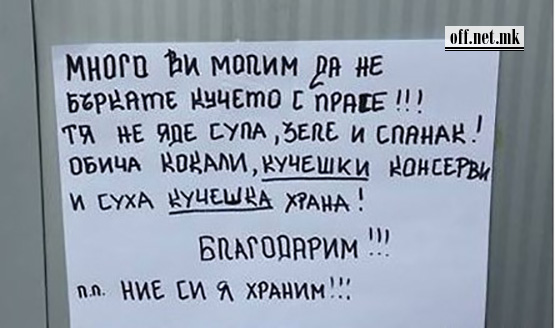 off.net.mk
МНОГО ВИ МОЛИМ ДА НЕ
БЪРКАТЕ КУЧЕТО С ПРАСЕ!!!
ТЯ НЕ ЯДЕ СУПА, ЗЕЛЕ И СПАНАК!
ОБИЧА КОКАЛИ, КУЧЕШКИ КОНСЕРВИ
И СУХА КУЧЕШКА ХРАНА!
БЛАГОДАРИМ!!!
П.П. НИЕ СИ Я ХРАНИМ!!!